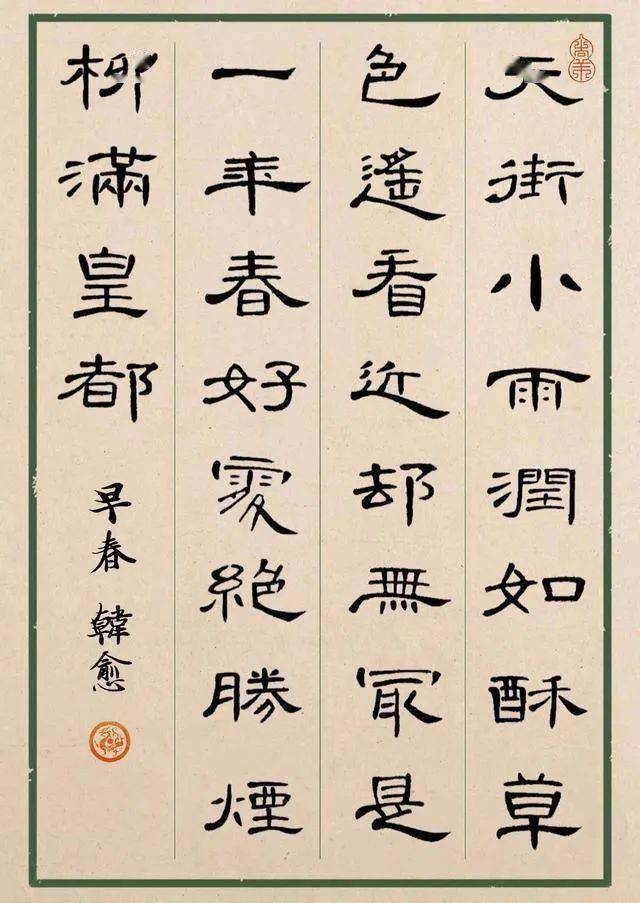 天街小雨潤如酥草
色遙看近却無冣是
一年春好處絕勝煙
柳滿皇都
早春 韓愈